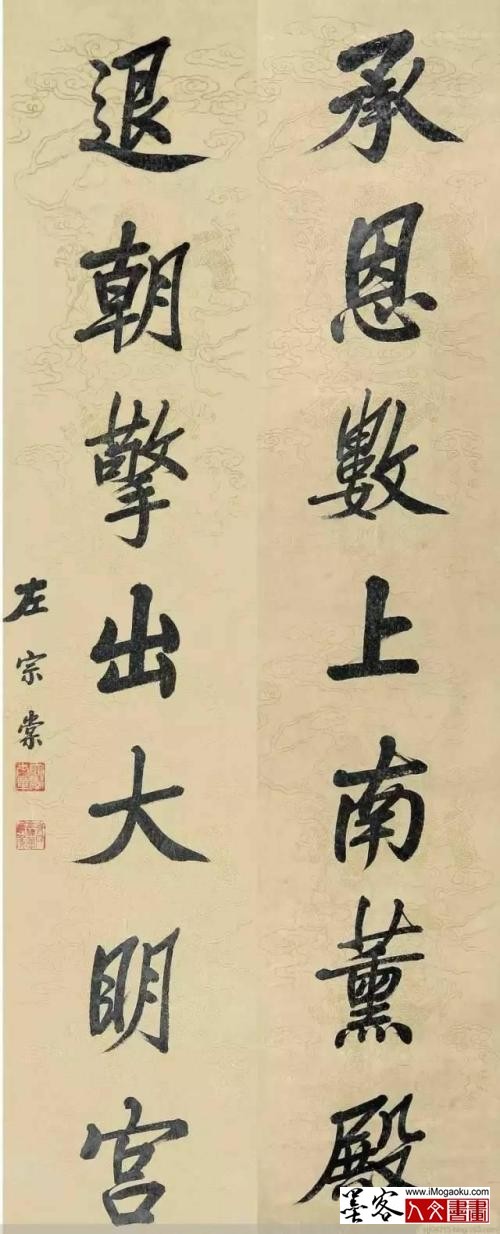 承恩數上南薰殿
退朝擎出大明宮
左宗棠
www.iMogaoku.com
墨客
人文書畫